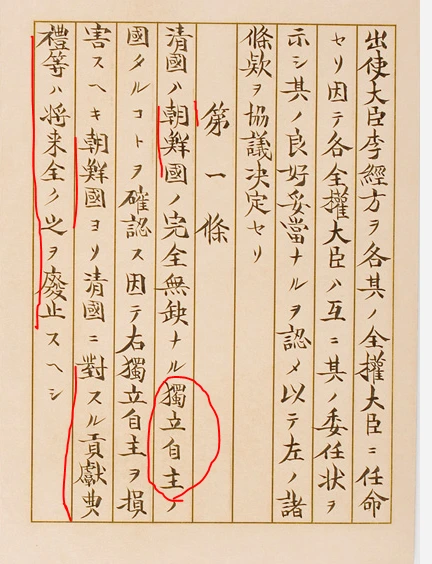 出使大臣李經方ヲ各其ノ全權大臣ニ任命
セリ因テ各全權大臣ハ互ニ其ノ委任状ヲ
示シ其ノ良好妥當ナルヲ認メ以テ左ノ諸
條欵ヲ協議决定セリ
第一條
清國ハ朝鮮國ノ完全無缺ナル獨立自主ノ
國タルコトヲ確認ス因テ右獨立自主ヲ損
害スヘキ朝鮮國ヨリ清國ニ對スル貢獻典
禮等ハ将来全ク之ヲ廢止スヘシ